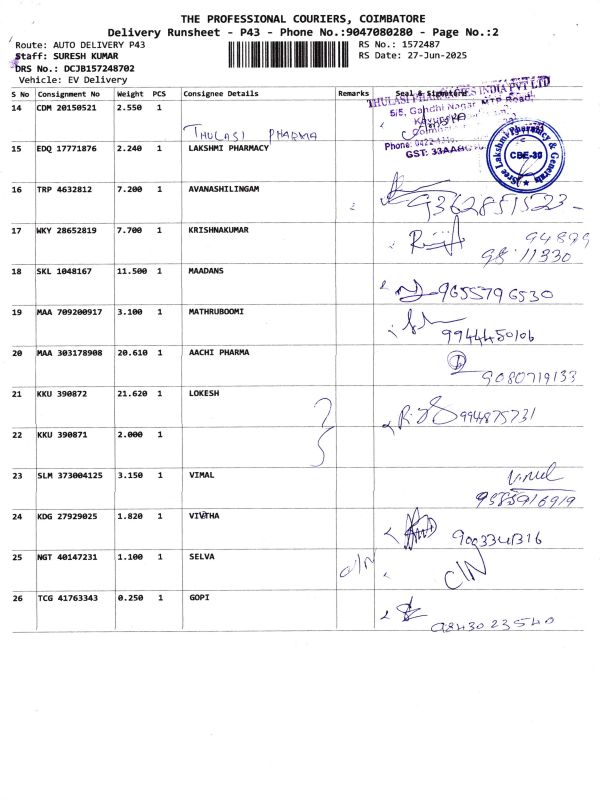 THE PROFESSIONAL COURIERS, COIMBATORE
Delivery Runsheet - P43 - Phone No.:9047080280 - Page No.:2
Route: AUTO DELIVERY P43 RS No.: 1572487
Staff: SURESH KUMAR RS Date: 27-Jun-2025
DRS No.: DCJB157248702
Vehicle: EV Delivery
S No Consignment No Weight PCS Consignee Details Remarks Seal & Signature
THULASI PHARMACIES INDIA PVT LTD
14 CDM 20150521 2.550 1
5/5, Gandhi Nagar, MTP Road,
THULASI PHARMA
15 EDQ 17771876 2.240 1 LAKSHMI PHARMACY
Phone: 0422
GST: 33AABC
Sree Lakshmi Pharmacy & Generals
CBE-30
16 TRP 4632812 7.200 1 AVANASHILINGAM
9362851523
17 WKY 28652819 7.700 1 KRISHNAKUMAR
94879
98 11330
18 SKL 1048167 11.500 1 MAADANS
9655796530
19 MAA 709200917 3.100 1 MATHRUBOOMI
9944450106
20 MAA 303178908 20.610 1 AACHI PHARMA
9080719133
21 KKU 390872 21.620 1 LOKESH
994875731
22 KKU 390871 2.000 1
23 SLM 373004125 3.150 1 VIMAL
Vimal
9585916919
24 KDG 27929025 1.820 1
9003341316
25 NGT 40147231 1.100 1 SELVA
C/N C/N
26 TCG 41763343 0.250 1 GOPI
9843023540